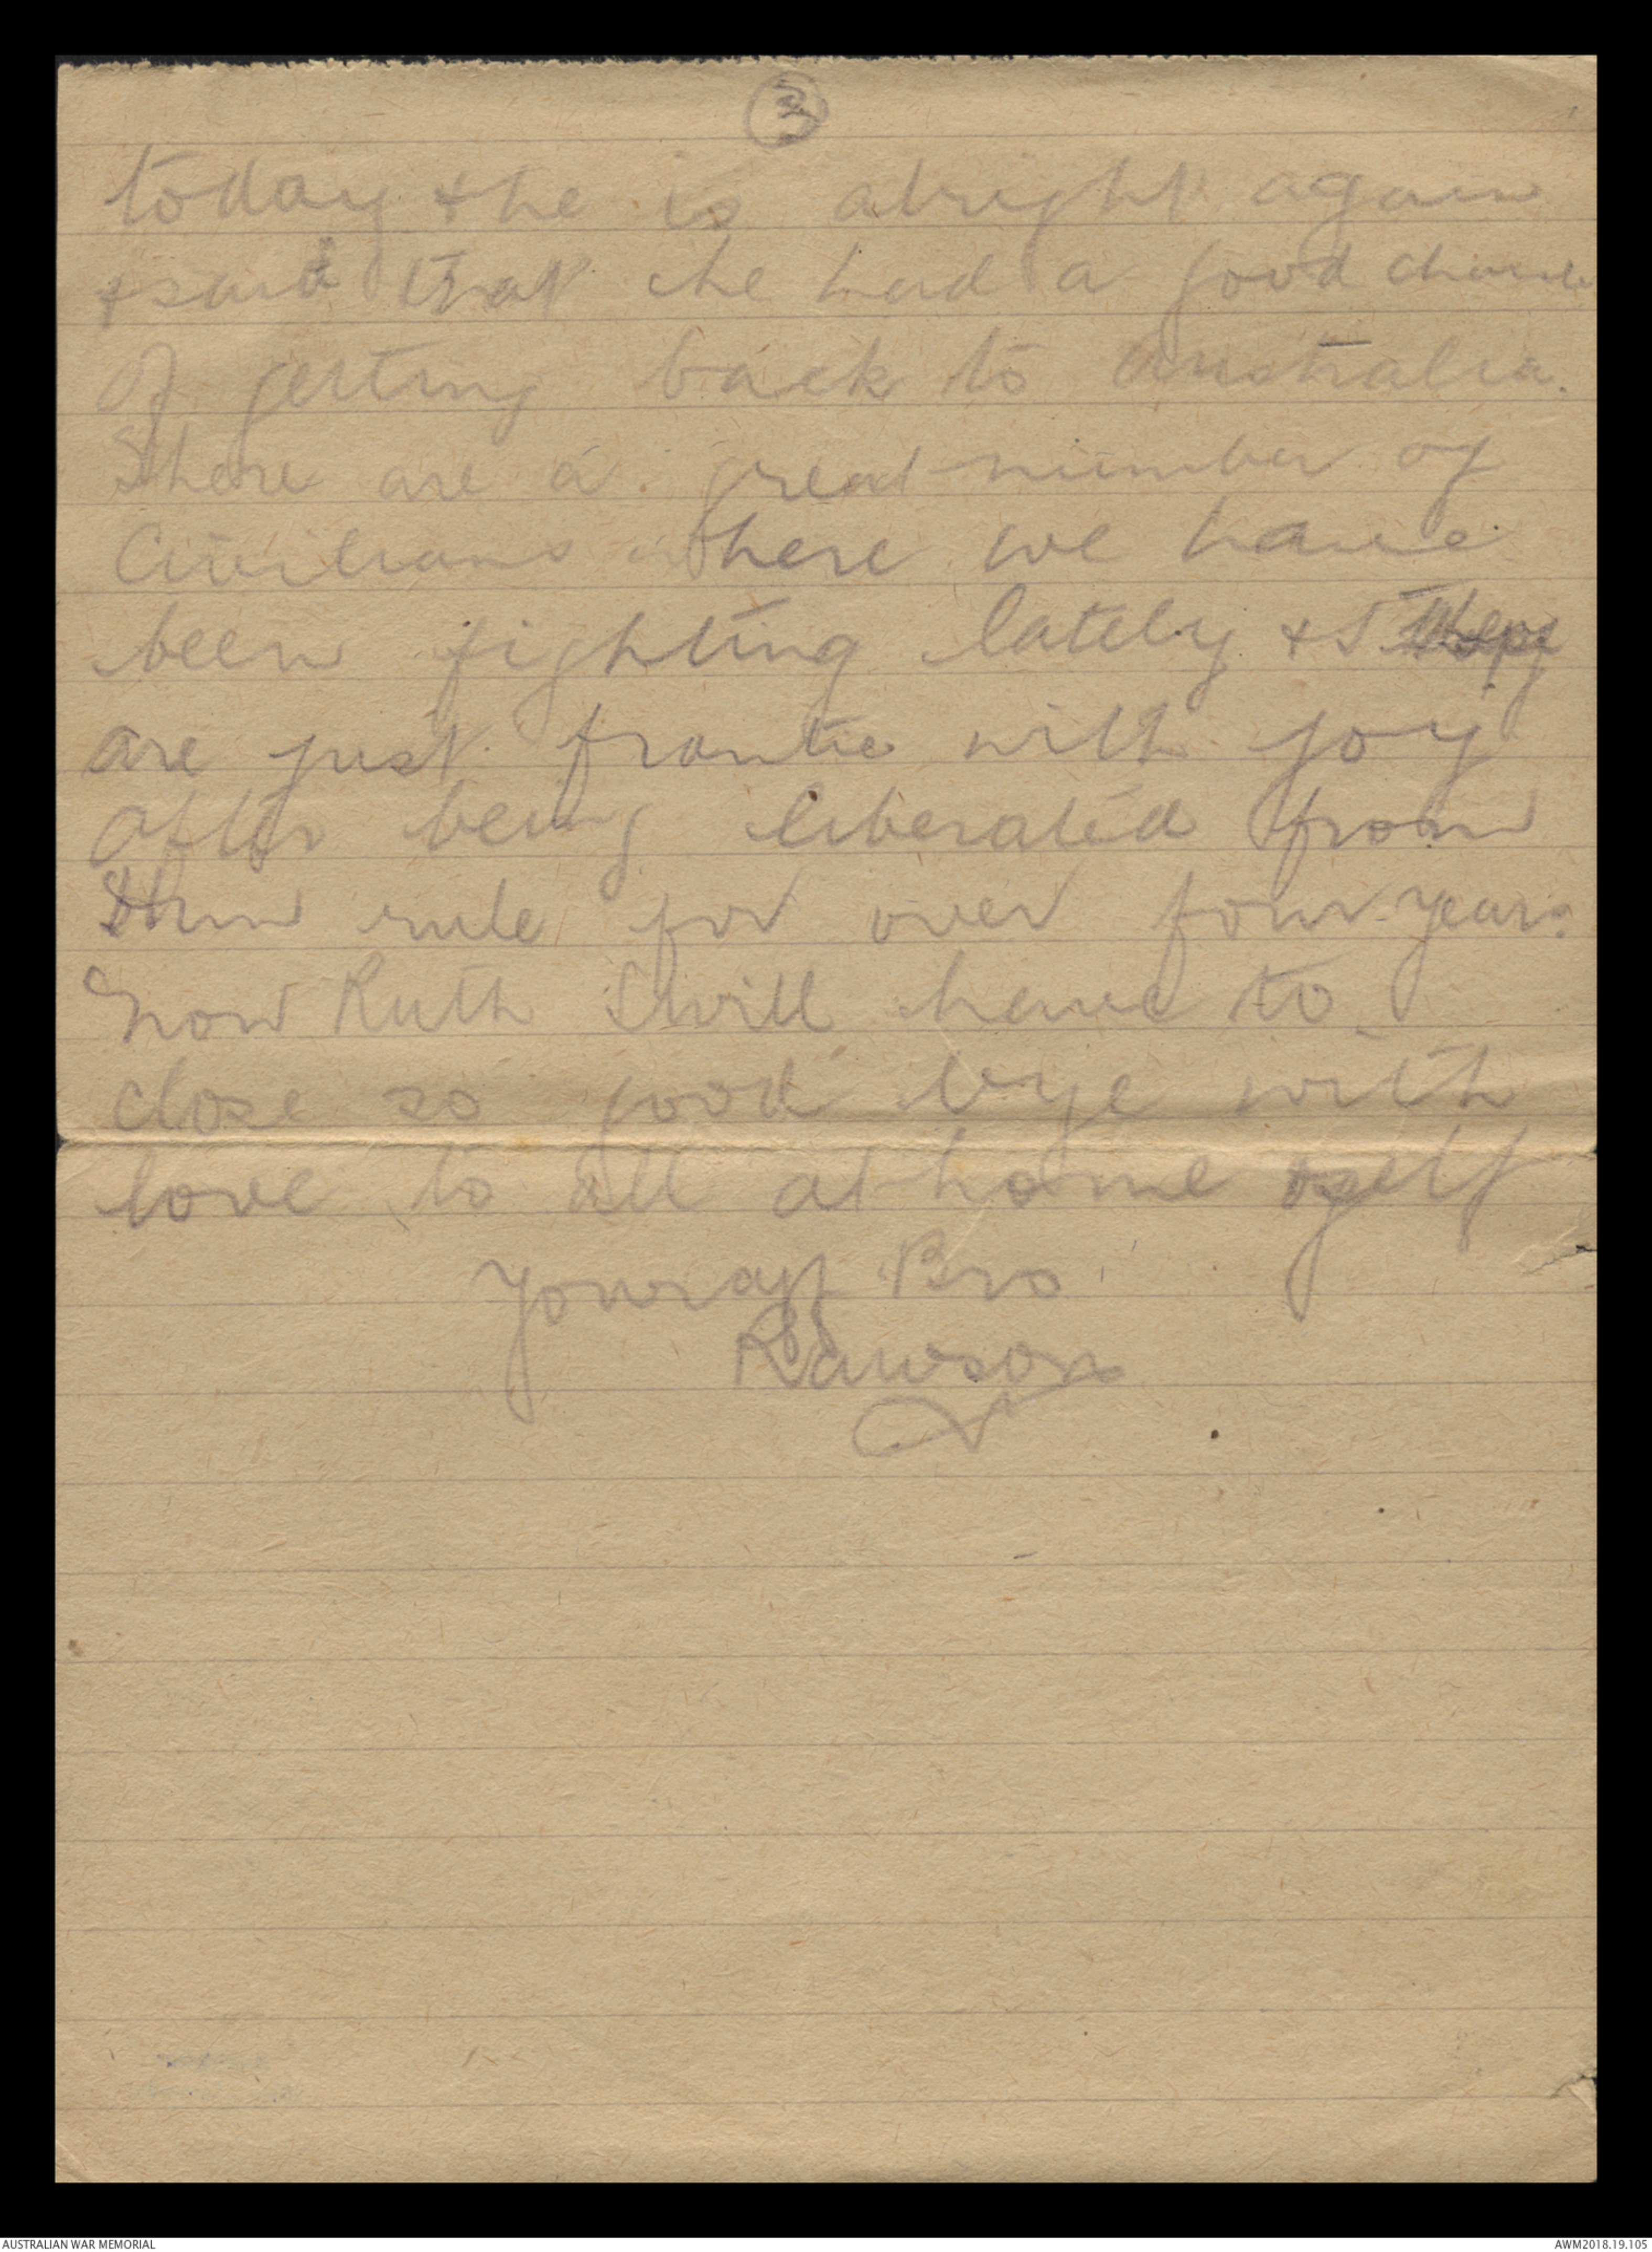 3
today & he is alright again
& said that he had a good chance
of getting back to Australia.
There are a great number of
Civilians where we have
been fighting lately & they
are just frantic with joy
after being liberated from
Hun rule for over four years
Now Ruth I will have to
close so good bye with
love to all at home & self
Your aff Bro
Rawson
AUSTRALIAN WAR MEMORIAL
AWM2018.19.105